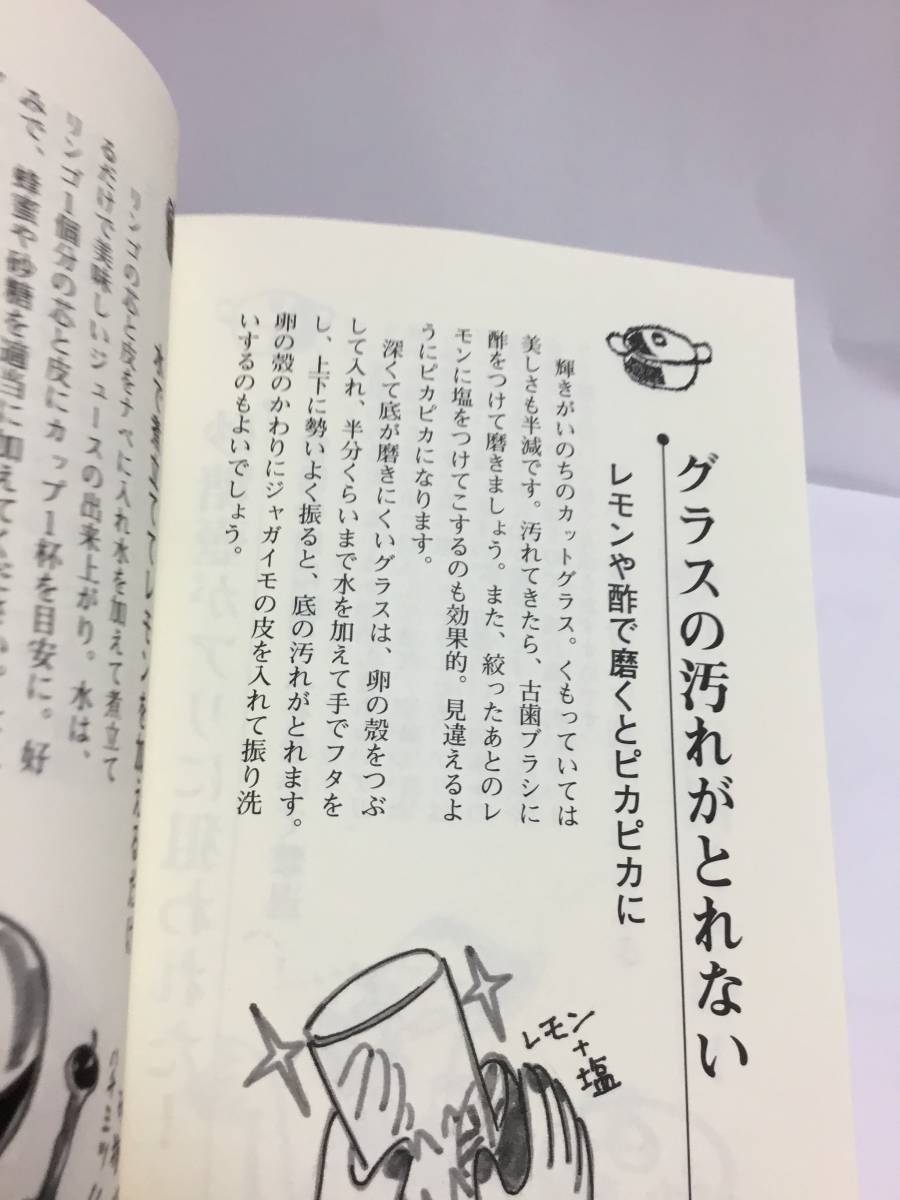 グラスの汚れがとれない
レモンや酢で磨くとピカピカに
輝きがいのちのカットグラス。くもっていては
美しさも半減です。汚れてきたら、古歯ブラシに
酢をつけて磨きましょう。また、絞ったあとのレ
モンに塩をつけてこするのも効果的。見違えるよ
うにピカピカになります。
深くて底が磨きにくいグラスは、卵の殻をつぶ
して入れ、半分くらいまで水を加えて手でフタを
し、上下に勢いよく振ると、底の汚れがとれます。
卵の殻のかわりにジャガイモの皮を入れて振り洗
いするのもよいでしょう。
レモン
+
塩
リンゴの芯と皮をナベに入れ水を加えて煮立て
るだけで美味しいジュースの出来上がり。水は、
リンゴ1個分の芯と皮にカップ1杯を目安に。好
みで、蜂蜜や砂糖を適当に加えてください。